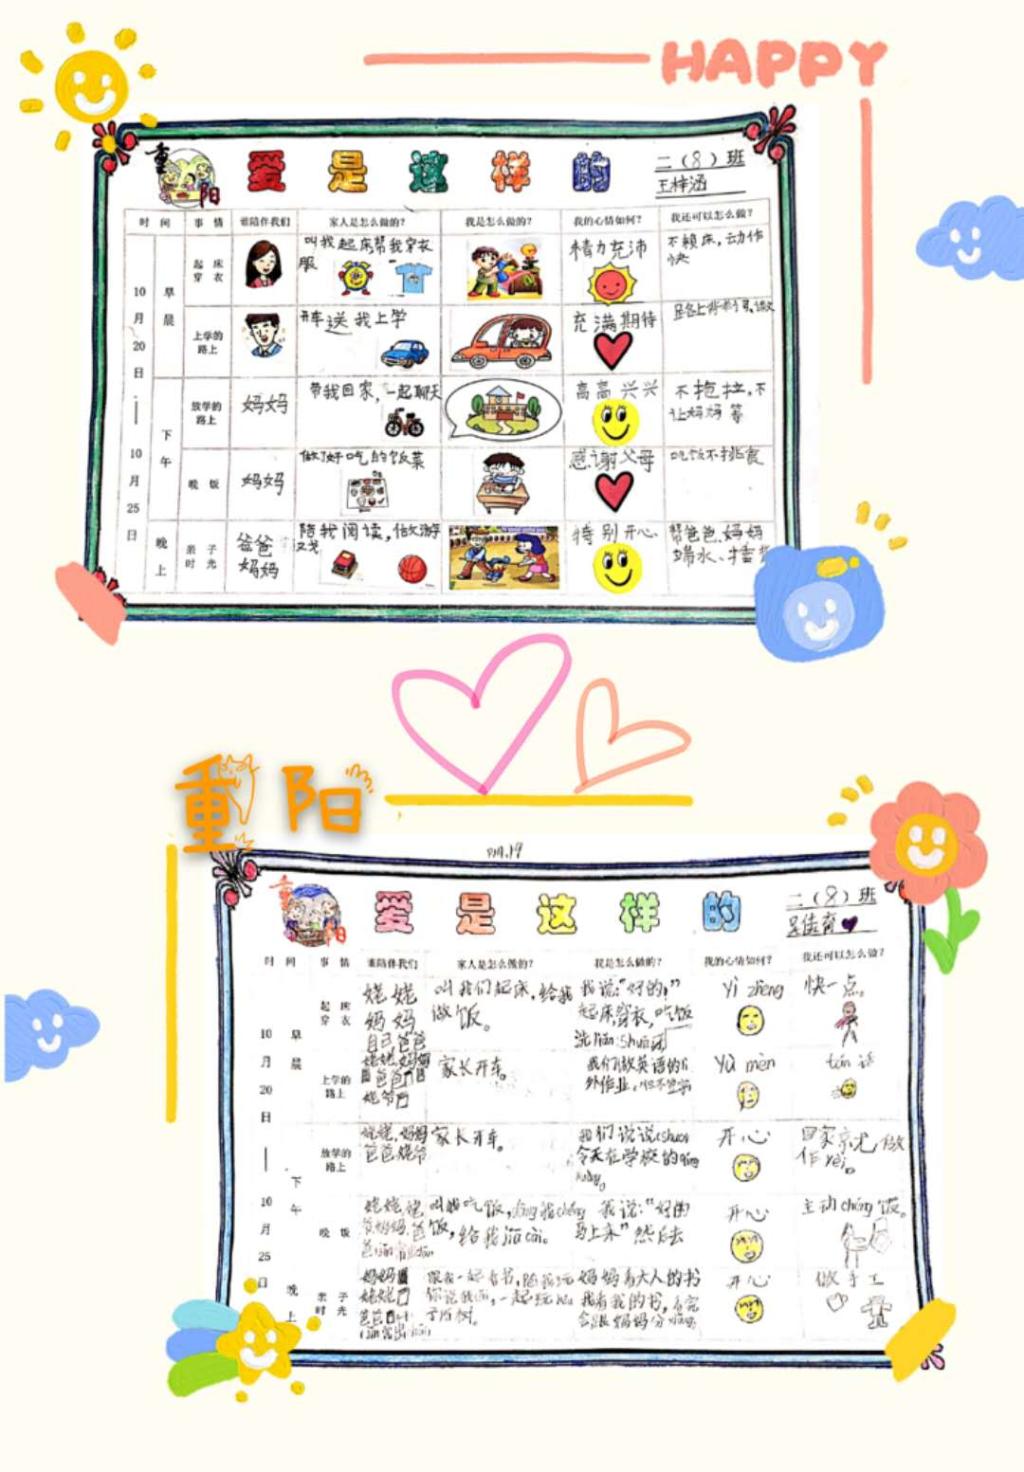 HAPPY
重阳
爱是这样的
二(8)班
王梓涵
时间 事情 谁陪伴我们 家人是怎么做的? 我是怎么做的? 我的心情如何? 我还可以怎么做?
10月20日——10月25日
早晨
起床穿衣
叫我起床帮我穿衣服
精力充沛
不赖床,动作快
上学的路上
开车送我上学
充满期待
下午
放学的路上
妈妈
带我回家,一起聊天
高高兴兴
不拖拉,不让妈妈等
晚饭
妈妈
做了好吃的饭菜
感谢父母
吃饭不挑食
晚上
亲子时光
爸爸妈妈
陪我阅读,做游戏
特别开心
帮爸爸、妈妈端水、
重阳
重阳
爱是这样的
二(8)班
时间 事情 谁陪伴我们 家人是怎么做的? 我是怎么做的? 我的心情如何? 我还可以怎么做?
10月20日——10月25日
早晨
起床穿衣
姥姥妈妈自己爸爸
叫我们起床,给我做饭。
我说:“好的!”起床,穿衣,吃饭
快一点。
上学的路上
家长开车。
Yù mèn
放学的路上
姥姥,妈妈
家长开车。
今天在学校的
开心
下午
晚饭
叫我吃饭,
饭,给我jiā cài。
马上来”然后去
开心
主动chéng饭。
晚上
亲子时光
妈妈
姥姥
爸爸
妈妈看大人的书
我看我的书,看完
开心
做手工